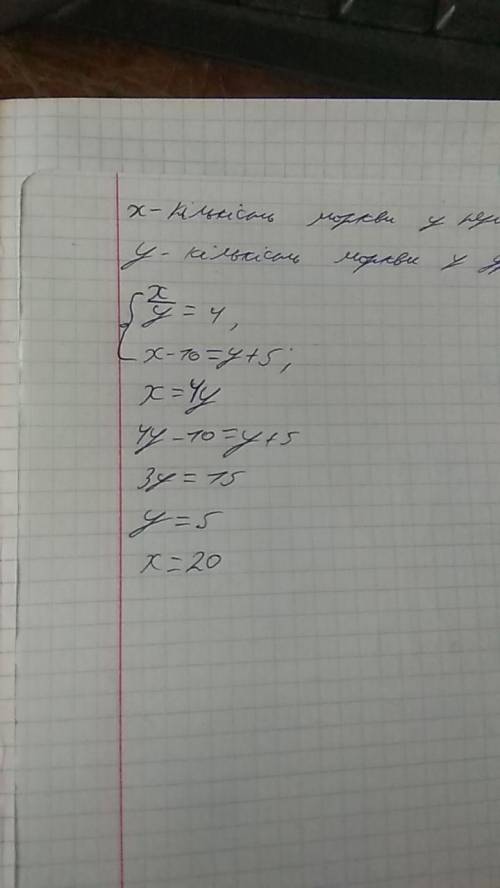 x - кількість моркви у
y - кількість моркви у
{ x/y = 4,
x - 10 = y + 5;
x = 4y
4y - 10 = y + 5
3y = 15
y = 5
x = 20